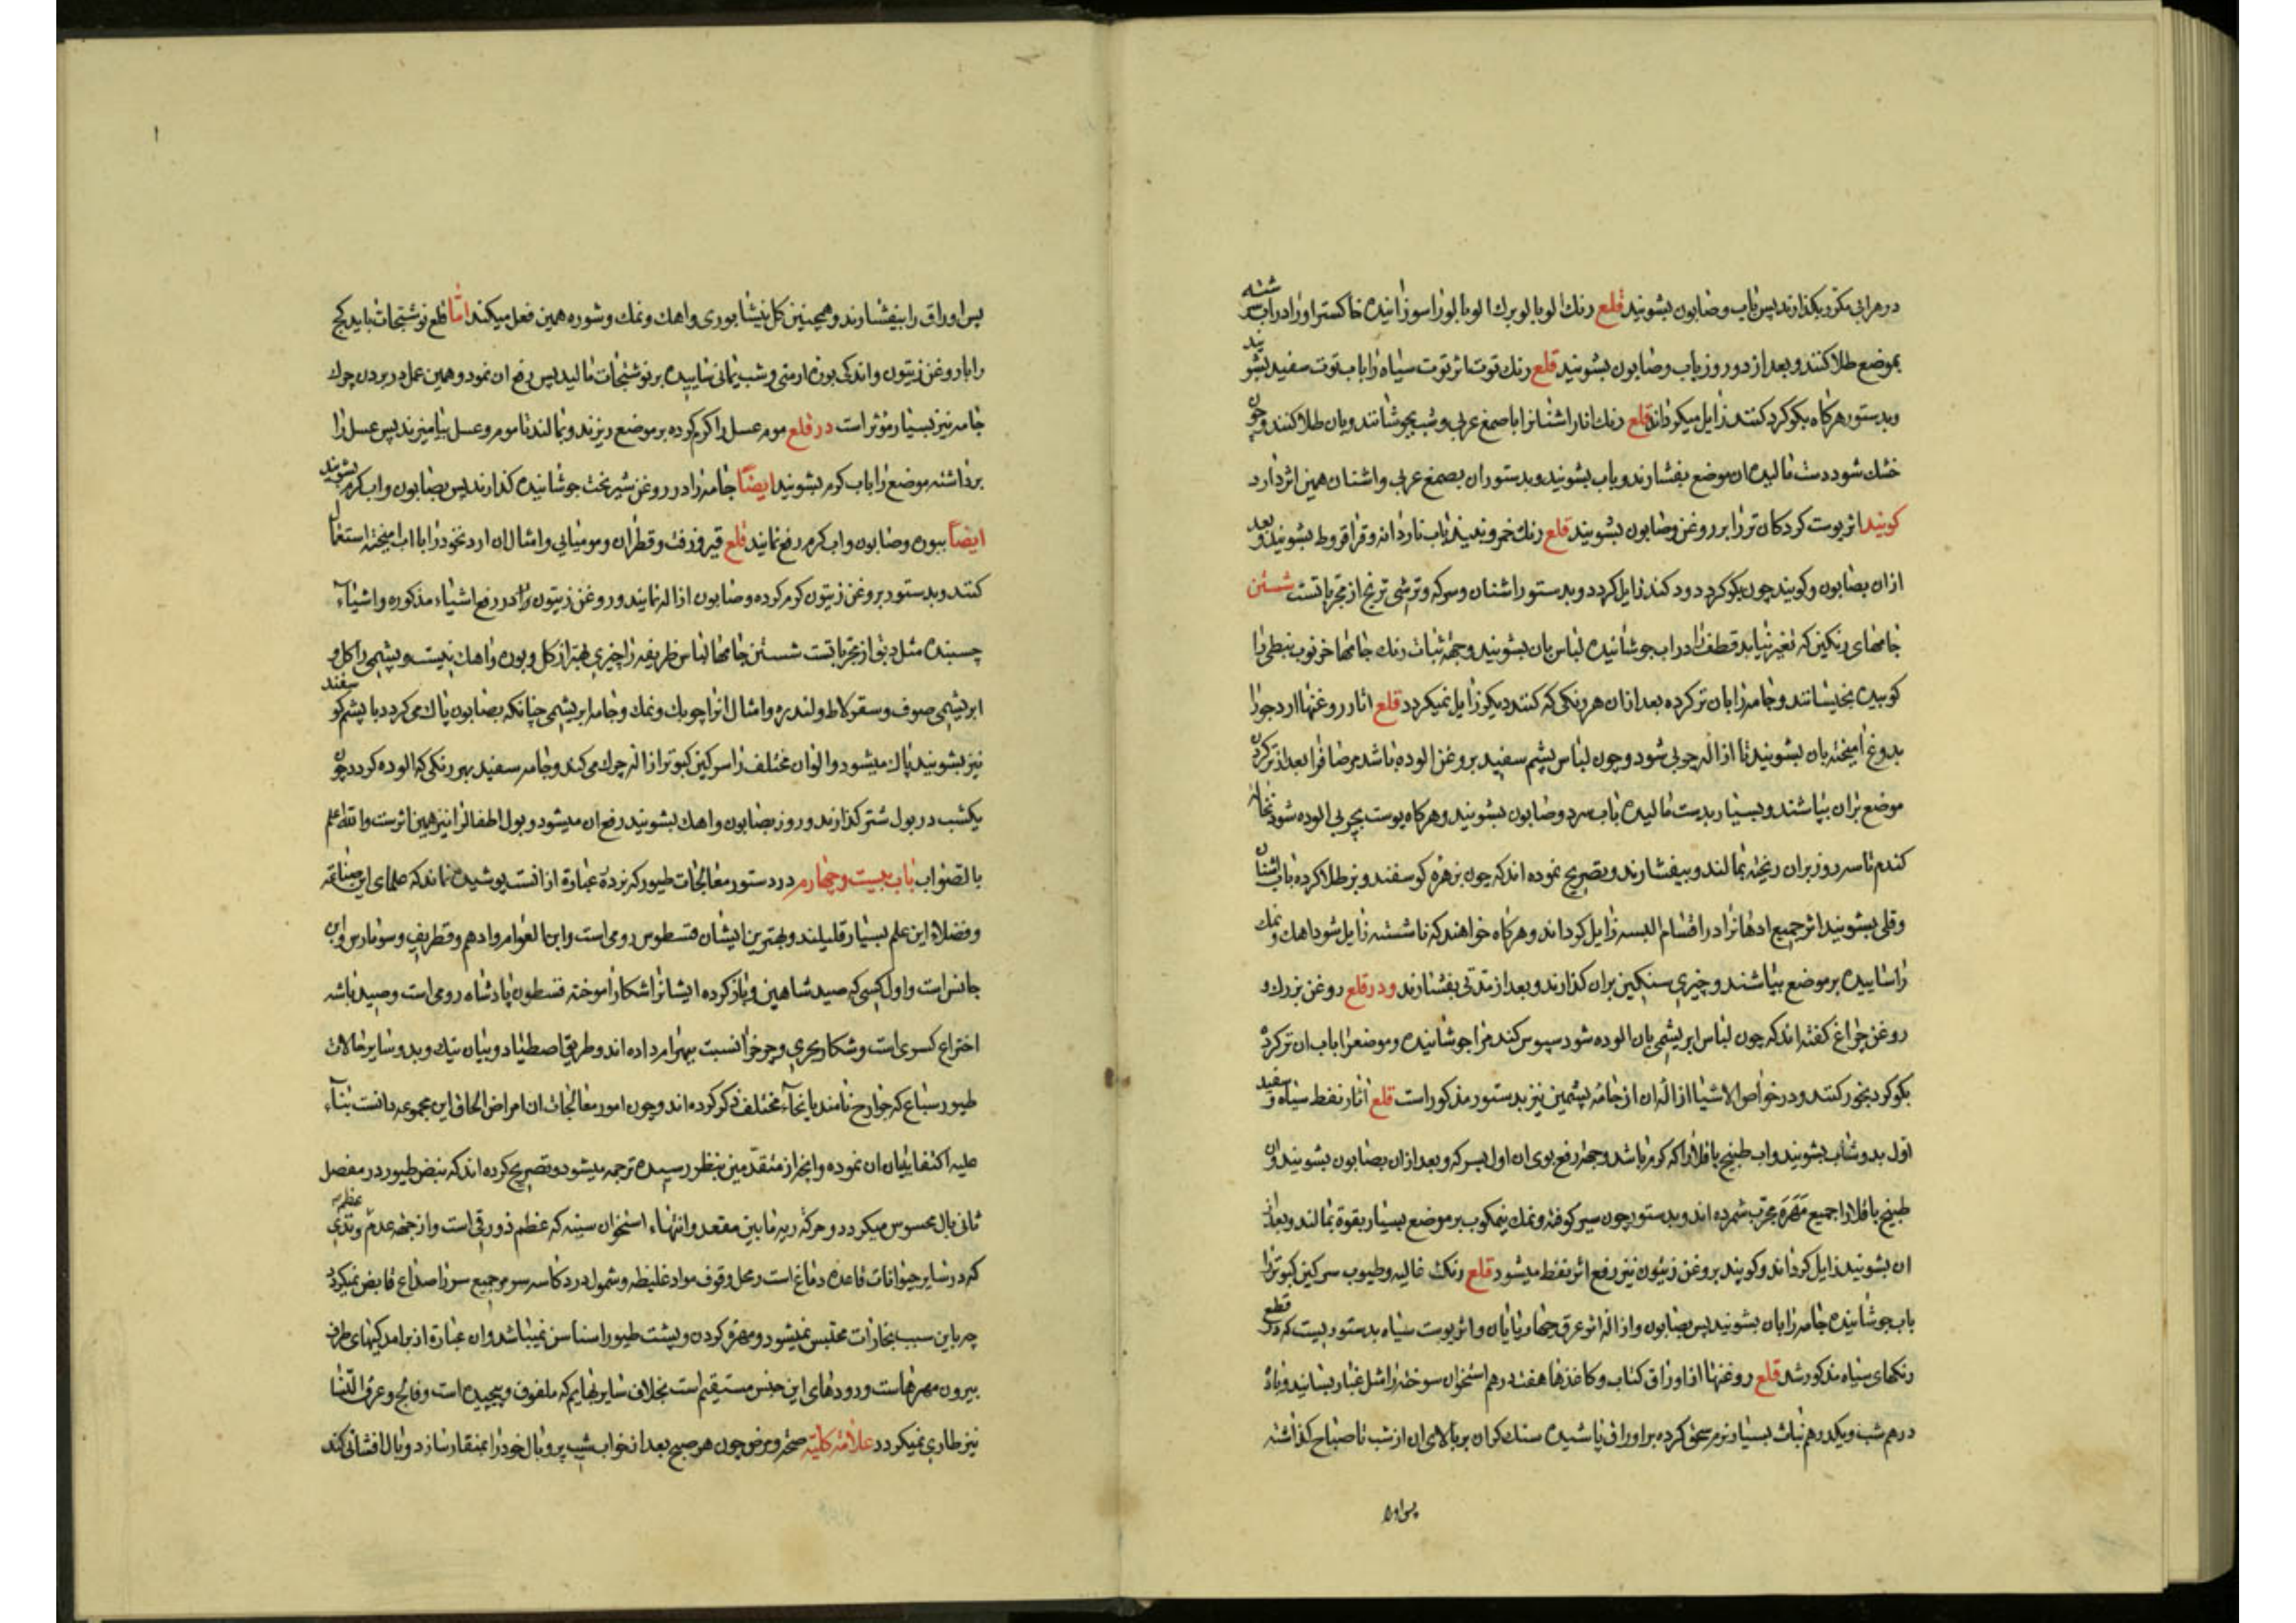 در هر ابی مکرر بکذارند پس باب و صابون بشویند قلع رنك الوبالو برك الوبالو را سوزانیده خاکستر او را در اب سرشته
بموضع طلا کنند و بعد از دو روز باب و صابون بشویند قلع رنك توت اثر توت سیاه را باب توت سفید بشویند
و بدستور هرکاه بکوکرد کنند زایل میکرداند قلع رنك انار اشنانرا با صمغ عربی و شب بجوشانند و بان طلا کنند و چون
خشك شود دست مالیده ان موضع بفشارند و باب بشویند و بدستور ان بصمغ عربی و اشنان همین اثر دارد
کویند اثر پوست کردکان تر را بروغن و صابون بشویند قلع رنك خمر و نبیذ باب ناردانه و قراقروط بشویند و بعد
ازان بصابون و کویند چون بکوکرد دود کنند زایل کردد و بدستور اشنان و سرکه و ترشی ترنج از مجرباتست شستن
جامهای رنکین که تغیر نیابد قطف را در اب جوشانیده لباس بان بشویند و جهة ثبات رنك جامها خرنوب نبطی را
کوبیده بخیسانند و جامه را بان تر کرده بعد ازان هر رنکی که کنند دیکر زایل نمیکردد قلع اثار روغنها ارد جو را
بدوغ امیخته بان بشویند تا ازاله چربی شود و چون لباس پشم سفید بروغن الوده باشد مرضافرا بعد از تر کردن
موضع بران بپاشند و بسیار بدست مالیده باب سرد و صابون بشویند و هرکاه پوست بچربی الوده شود نخاله
کندم تا سه روز بران ریخته بمالند و بیفشارند و تصریح نموده اند که چون بزهره کوسفند و بز طلا کرده باب اشنان
و قلی بشویند اثر جمیع ادهانرا در اقسام البسه زایل کرداند و هرکاه خواهند که ناشسته زایل شود اهك و نمك
را سائیده بر موضع بپاشند و چیزی سنکین بران کذارند و بعد از مدتی بفشارند و در قلع روغن بزرك و
روغن چراغ کفته اند که چون لباس ابریشمی بان الوده شود سبوس کندم را جوشانیده و موضع را باب ان تر کرده
بکوکرد بخور کنند و در خواص الاشیا ازاله ان از جامه پشمین نیز بدستور مذکور است قلع اثار نفط سیاه و سفید
اول بدوشاب بشویند و اب طبیخ باقلا را که کرم باشد و جهة رفع بوی ان اول بسرکه و بعد ازان بصابون بشویند و ان
طبیخ باقلا را جمیع مهره مجرب شمرده اند و بدستور چون سیر کوفته و نمك نیمکوب بر موضع بسیار بقوة بمالند و بعد از
ان بشویند زایل کرداند و کویند بروغن زیتون نیز رفع اثر نفط میشود قلع رنك غالیه و طیوب سرکین کبوتر را
باب جوشانیده جامه را بان بشویند پس بصابون و ازاله اثر عرق چهارپایان و اثر پوست سیاه بدستوریست که در قطع
رنکهای سیاه مذکور شد قلع روغنها از اوراق کتاب و کاغذها هفت درهم استخوان سوخته را مثل غبار بسایند و با ده
درهم شب و یکدرهم نبات بسیار نرم سحق کرده بر اوراق پاشیده سنك کران بر بالای ان از شب تا صباح کذاشته
پس اوراق
پس اوراق را بیفشارند و همچنین کل نیشابوری و اهك و نمك و شوره همین فعل میکند اما قلع نوشتجات باید کج
را با روغن زیتون و اندکی بوره ارمنی و شب یمانی ساییده بر نوشتجات مالید پس رفع ان نمود و همین عمل در بردن چرك
جامه نیز بسیار مؤثر است در قلع موم عسل را کرم کرده بر موضع ریزند و بمالند تا موم و عسل بیامیزند پس عسل را
برداشته موضع را باب کرم بشویند ایضاً جامه را در روغن شیربخت جوشانیده کذارند پس بصابون و اب کرم بشویند
ایضاً ببوره و صابون و اب کرم رفع نمایند قلع قیر و زفت و قطران و مومیایی و امثال ان ارد نخود را با اب امیخته استعمال
کنند و بدستور بروغن زیتون کرم کرده و صابون ازاله نمایند و روغن زیتون را در رفع اشیاء مذکوره و اشیاء
چسبنده مثل دبق از مجرباتست شستن جامها لباس ظریفه را چیزی بهتر از کل و بوره و اهك نیست و پشمی را کل و
ابریشمی صوف و سقرلاط و لندره و امثال انرا چوبك و نمك و جامه ابریشمی چنانکه بصابون پاك می کردد با پشم کوسفند
نیز بشویند پاك میشود و الوان مختلف را سرکین کبوتر ازاله چرك می کند و جامه سفید بهر رنکی که الوده کردد چون
یکشب در بول شتر کذارند و روز بصابون و اهك بشویند رفع ان میشود و بول اطفالرا نیز همین اثرست والله اعلم
بالصواب باب بیست و چهارم در دستور معالجات طیور که بزدره عبارة از انست پوشیده نماند که علمای این صناعة
و فضلاء این علم بسیار قلیلند و بهترین ایشان قسطوس رومی است و ابن العوام و ادهم و قطریف و سونارس و ابن
جانس است و اول کسی که صید شاهین و باز کرده ایشانرا شکار اموخته قسطون پادشاه رومی است و صید باشه
اختراع کسری است و شکار بحری و چرخ را نسبت ببهرام داده اند و طریق اصطیاد و بیان نیك و بد و سایر حالات
طیور سباع که جوارح نامند بانحاء مختلف ذکر کرده اند و چون امور معالجات ان امراض الحاق این مجموعه دانست بناء
علیه اکتفا ببیان ان نموده و انچه از متقدمین بنظر رسیده ترجمه میشود و تصریح کرده اند که نبض طیور در مفصل
ثانی بال محسوس میکردد و حرکة ریه ما بین مقعد و انتهاء استخوان سینه که عظم زورقی است و از جهة عدم عظم وتدی
که در سایر حیوانات قاعده دماغ است و محل وقوف مواد غلیظه و شمول درد کاسه سر و جمیع سر را صداع عارض نمیکردد
چه باین سبب بخارات محتبس نمیشود و مهره کردن و پشت طیور را سناسن نمیباشد و ان عبارة از برامدکیهای طرف
بیرون مهرهاست و رودهای این جنس مستقیم است بخلاف سایر بهایم که ملفوف و پیچیده است و فالج و عرق النسا
نیز طاری نمیکردد علامة کلیه صحة و مرض چون هر صبح بعد از خواب شب پر و بال خود را بمنقار سازد و بال افشانی کند